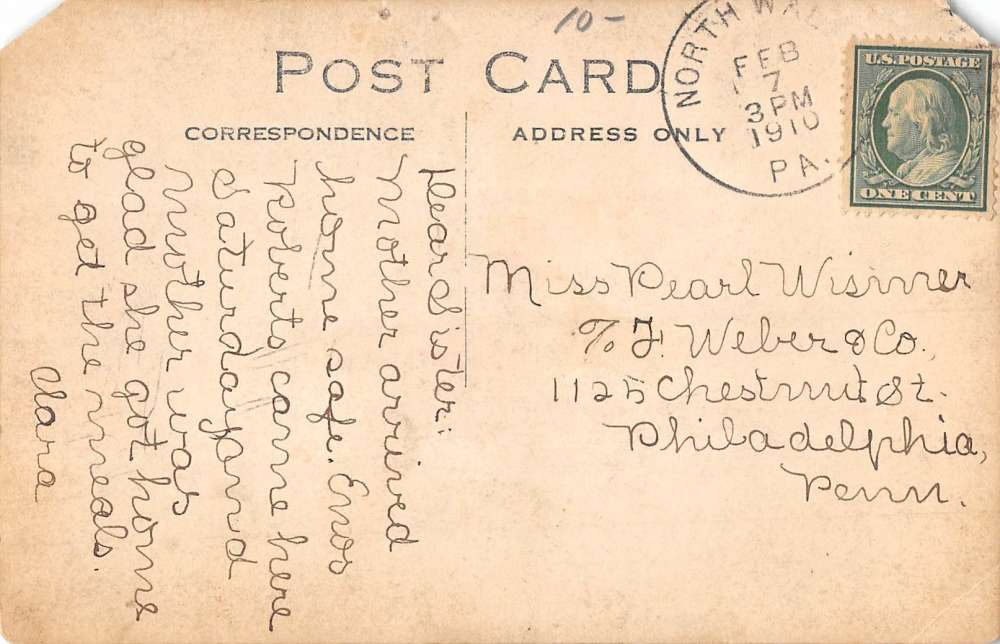 10-
POST CARD
CORRESPONDENCE
ADDRESS ONLY
NORTH WAL
FEB
7
3 PM
1910
PA.
U.S. POSTAGE
ONE CENT
Dear Sister:
Mother arrived
home safe. Enos
Roberts came here
Saturday and
Mother was
glad she got home
to get the meals.
Clara
Miss Pearl Wismer
℅ F. Weber & Co.,
1125 Chestnut St.
Philadelphia,
Penn.